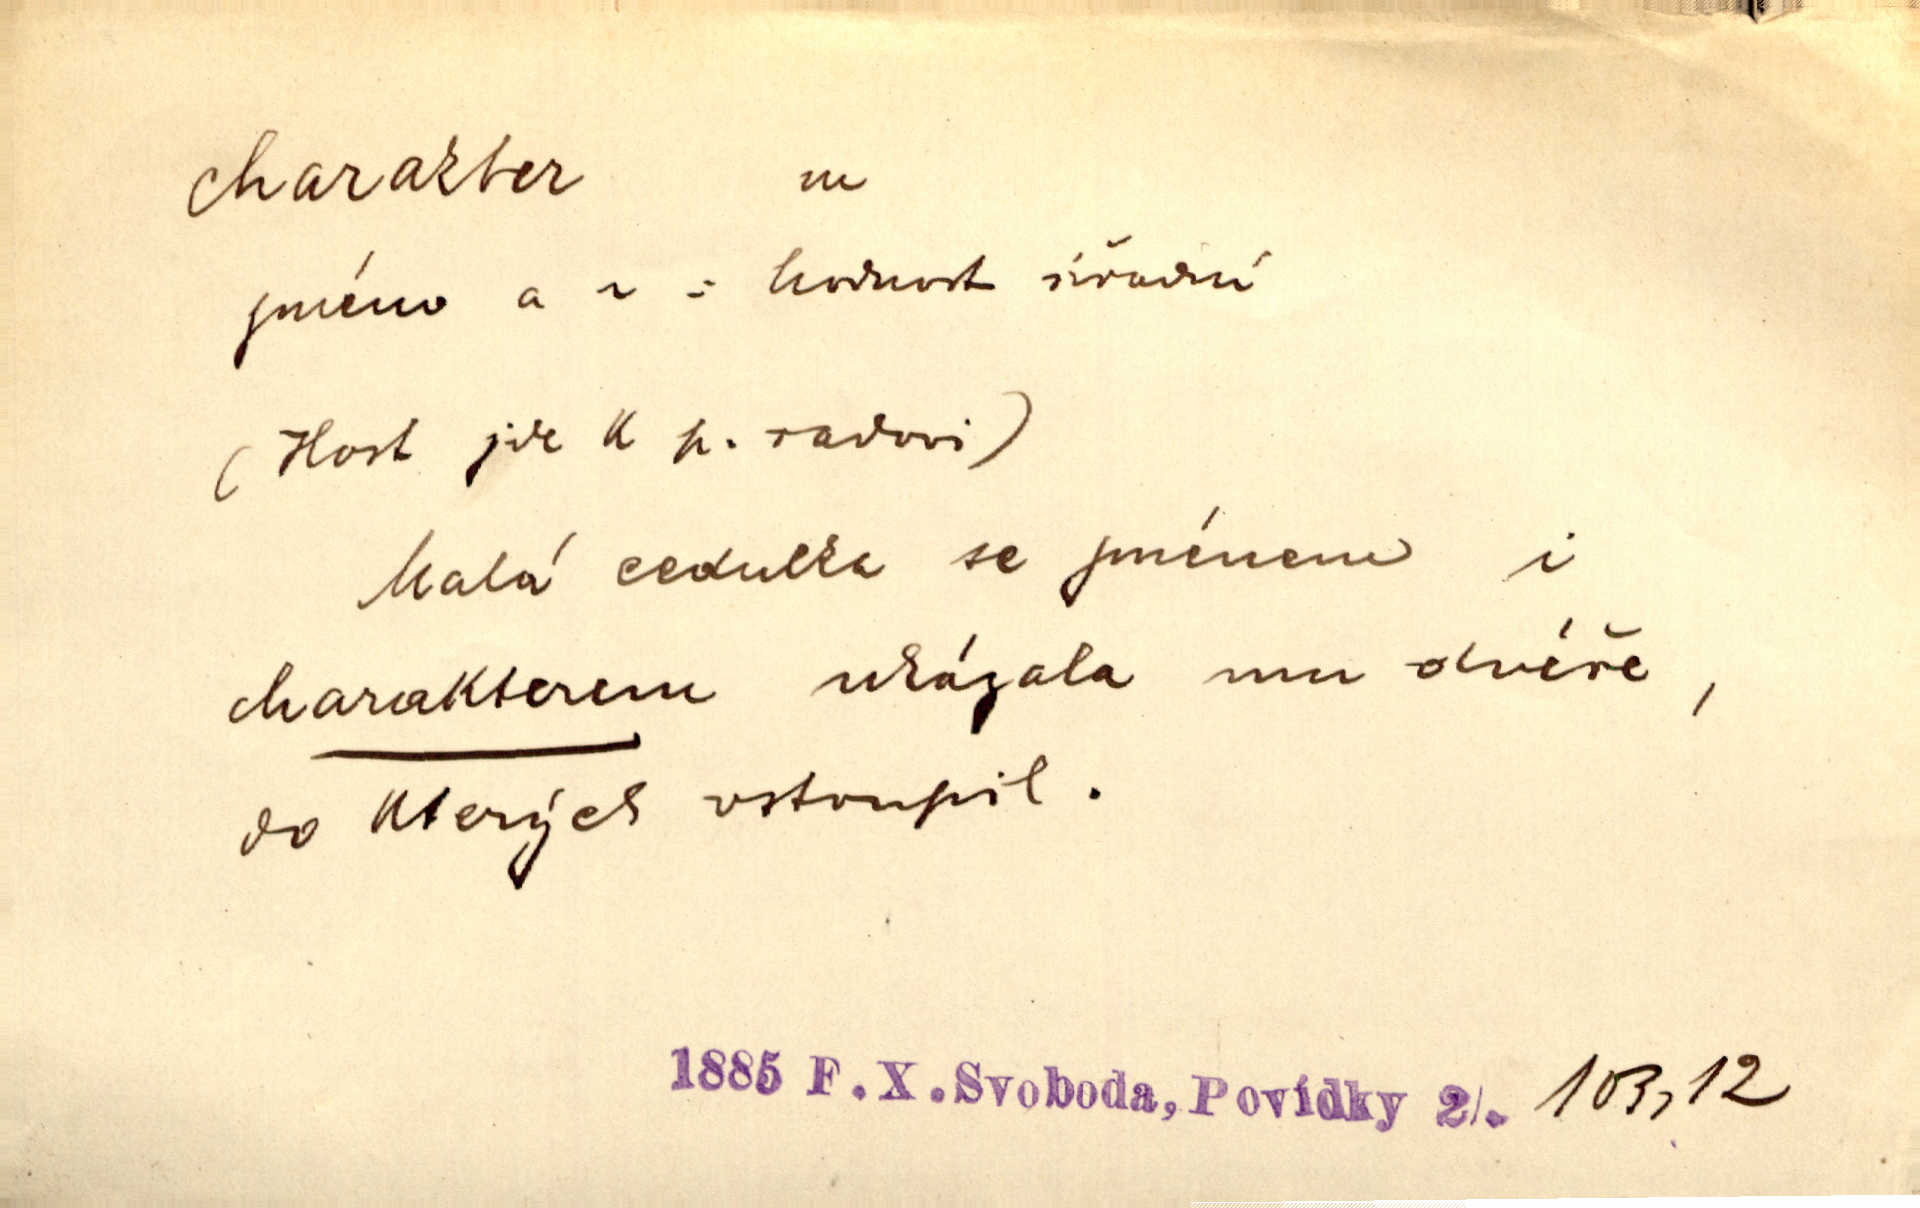 charakter m
jméno a ~ = hodnost úřadní
(Host jde k p. radovi)
Malá cedulka se jménem i
charakterem ukázala mu dvéře,
do kterých vstoupil.
1885 F.X.Svoboda, Povídky 2/. 103,12